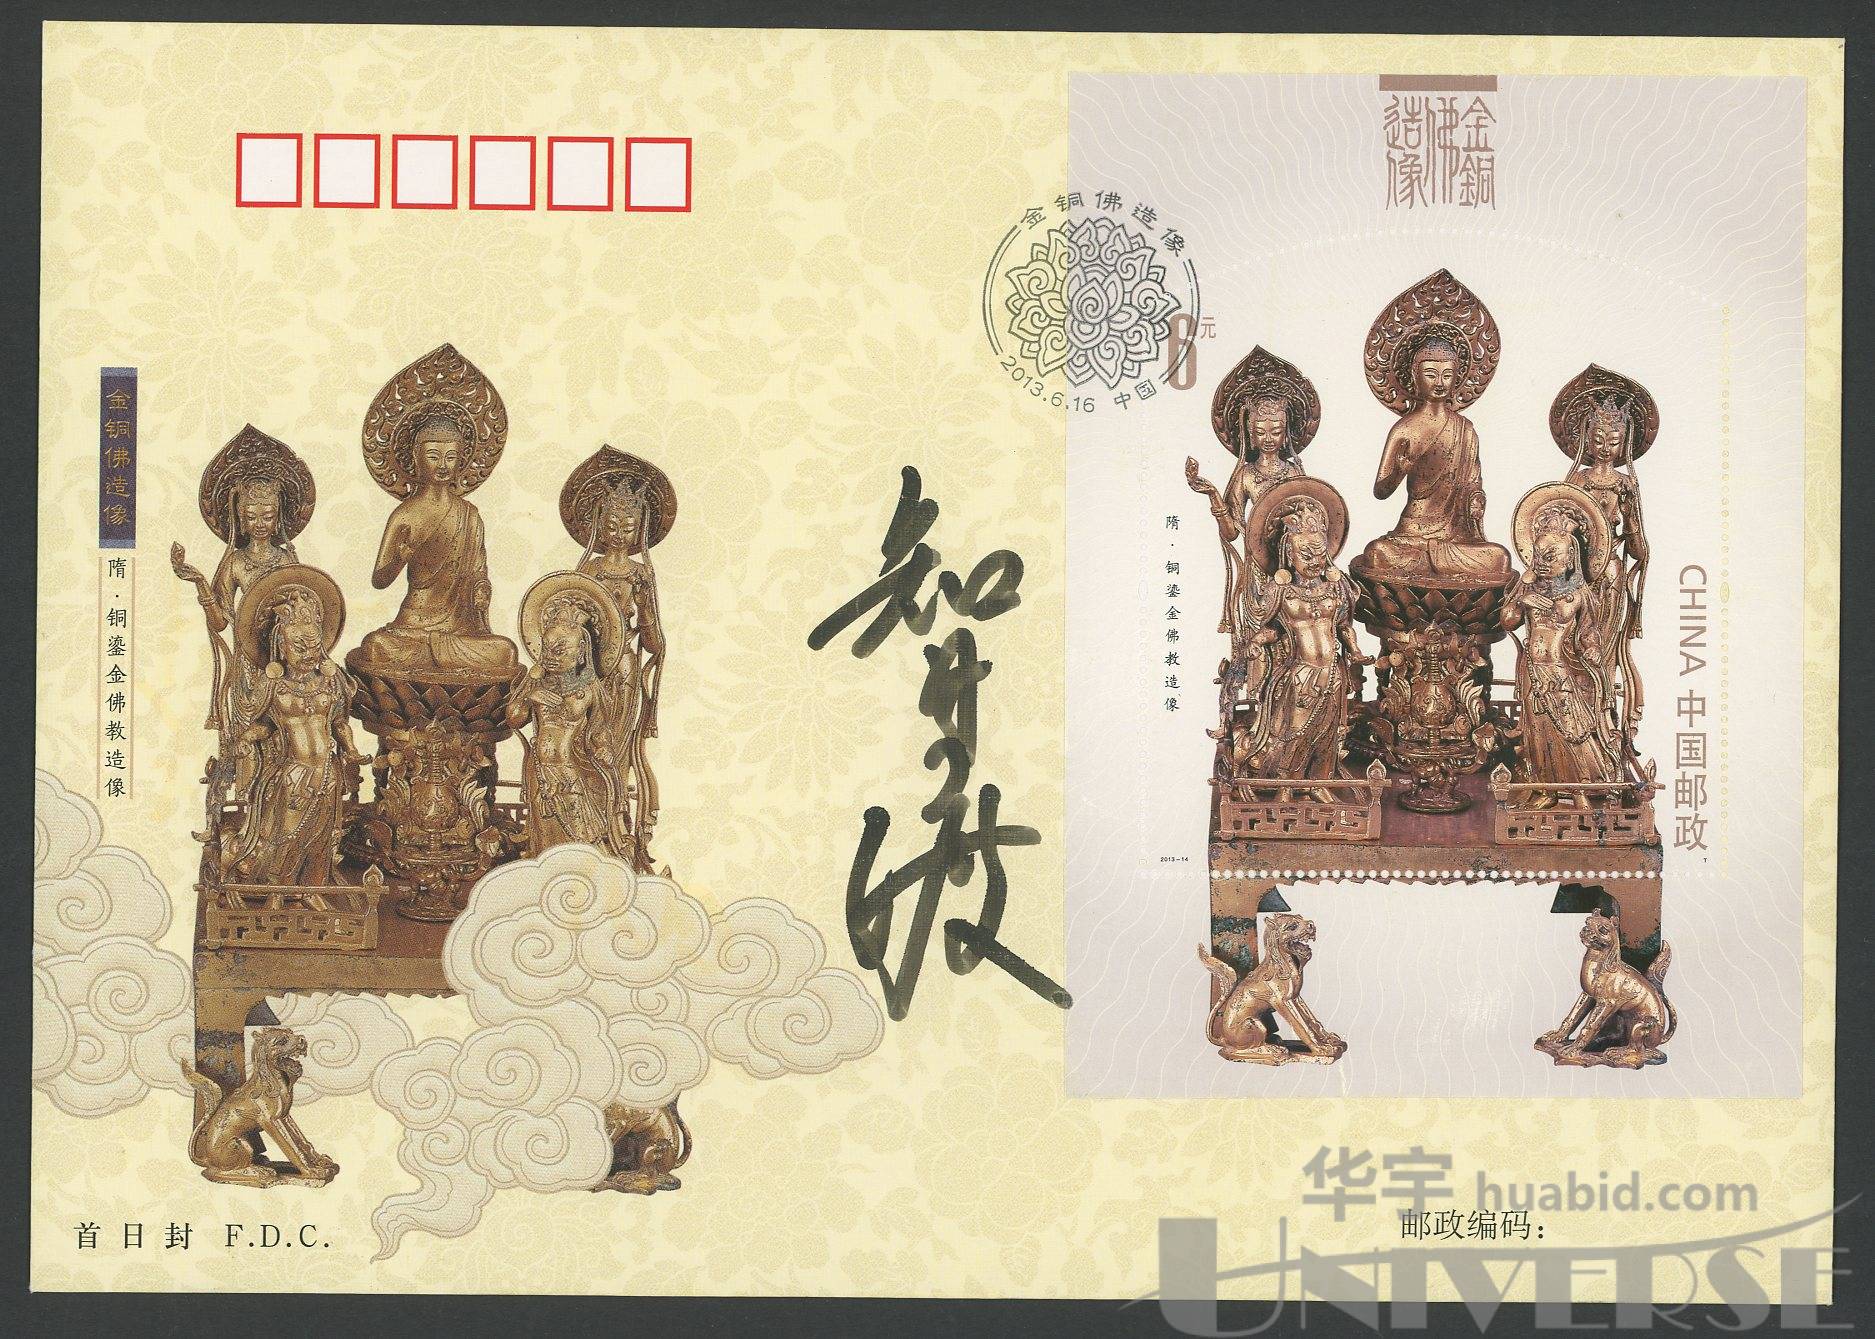 金铜佛造像
隋·铜鎏金佛教造像
首日封 F.D.C.
金铜佛造像
2013.6.16 中国
金銅佛造像
6元
隋·铜鎏金佛教造像
CHINA 中国邮政
2013-14
T
邮政编码：
华宇 huabid.com
UNIVERSE